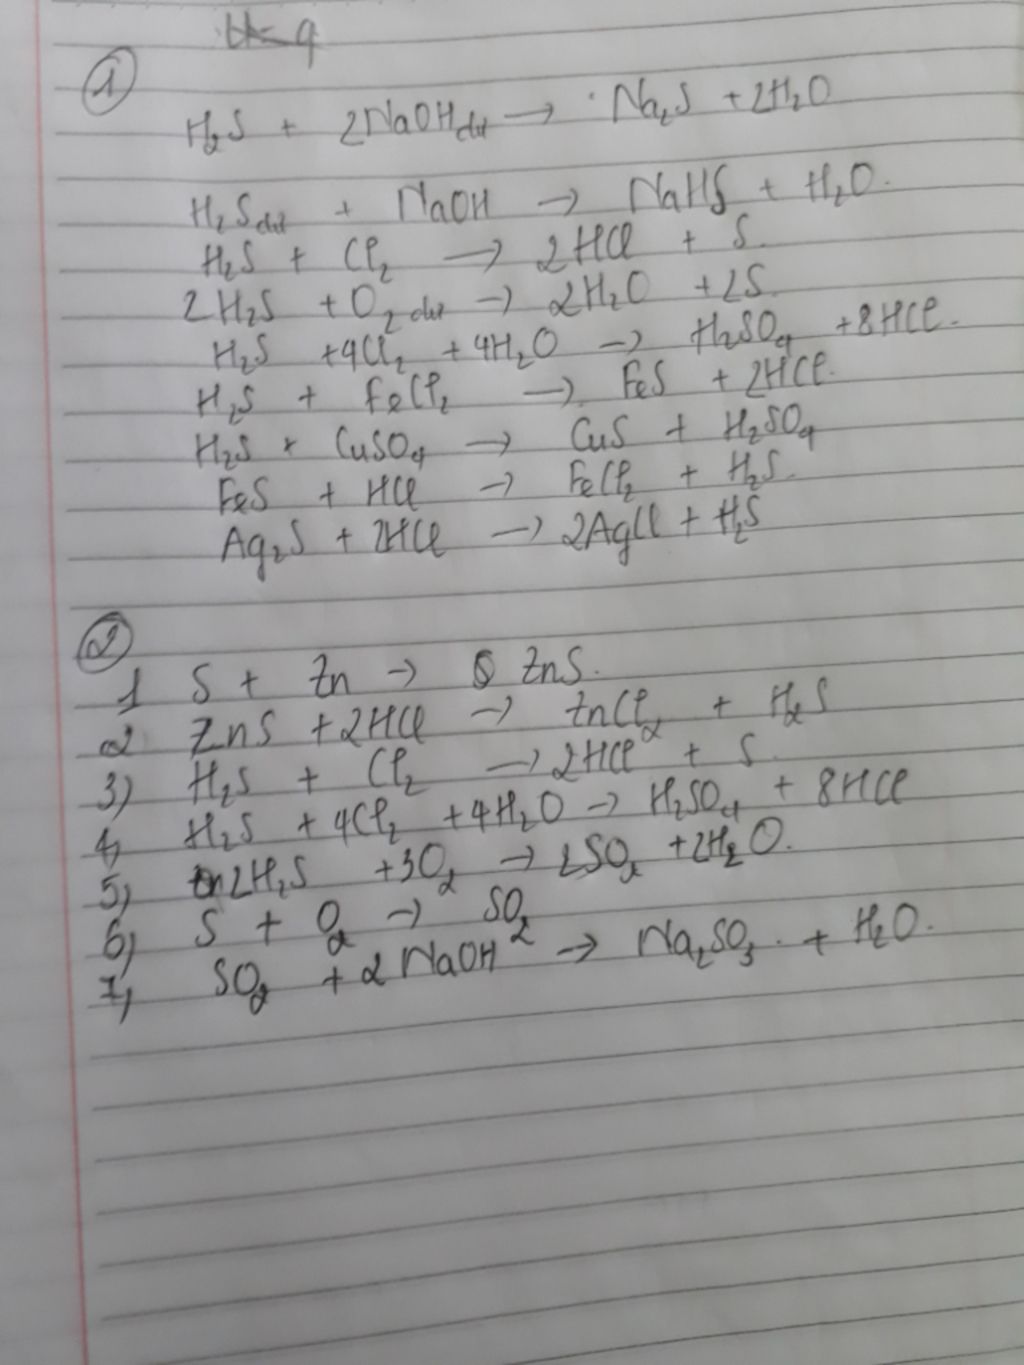 ①
H₂S + 2NaOH dư → Na₂S + 2H₂O
H₂S dư + NaOH → NaHS + H₂O.
H₂S + Cl₂ → 2HCl + S.
2H₂S + O₂ dư → 2H₂O + 2S.
H₂S + 4Cl₂ + 4H₂O → H₂SO₄ + 8HCl.
H₂S + FeCl₂ → FeS + 2HCl.
H₂S + CuSO₄ → CuS + H₂SO₄
FeS + HCl → FeCl₂ + H₂S.
Ag₂S + 2HCl → 2AgCl + H₂S
②
1 S + Zn → ZnS.
2 ZnS + 2HCl → ZnCl₂ + H₂S
3) H₂S + Cl₂ → 2HCl + S.
4, H₂S + 4Cl₂ + 4H₂O → H₂SO₄ + 8HCl
5) 2H₂S + 3O₂ → 2SO₂ + 2H₂O.
6, S + O₂ → SO₂
7, SO₂ + 2NaOH → Na₂SO₃ + H₂O.